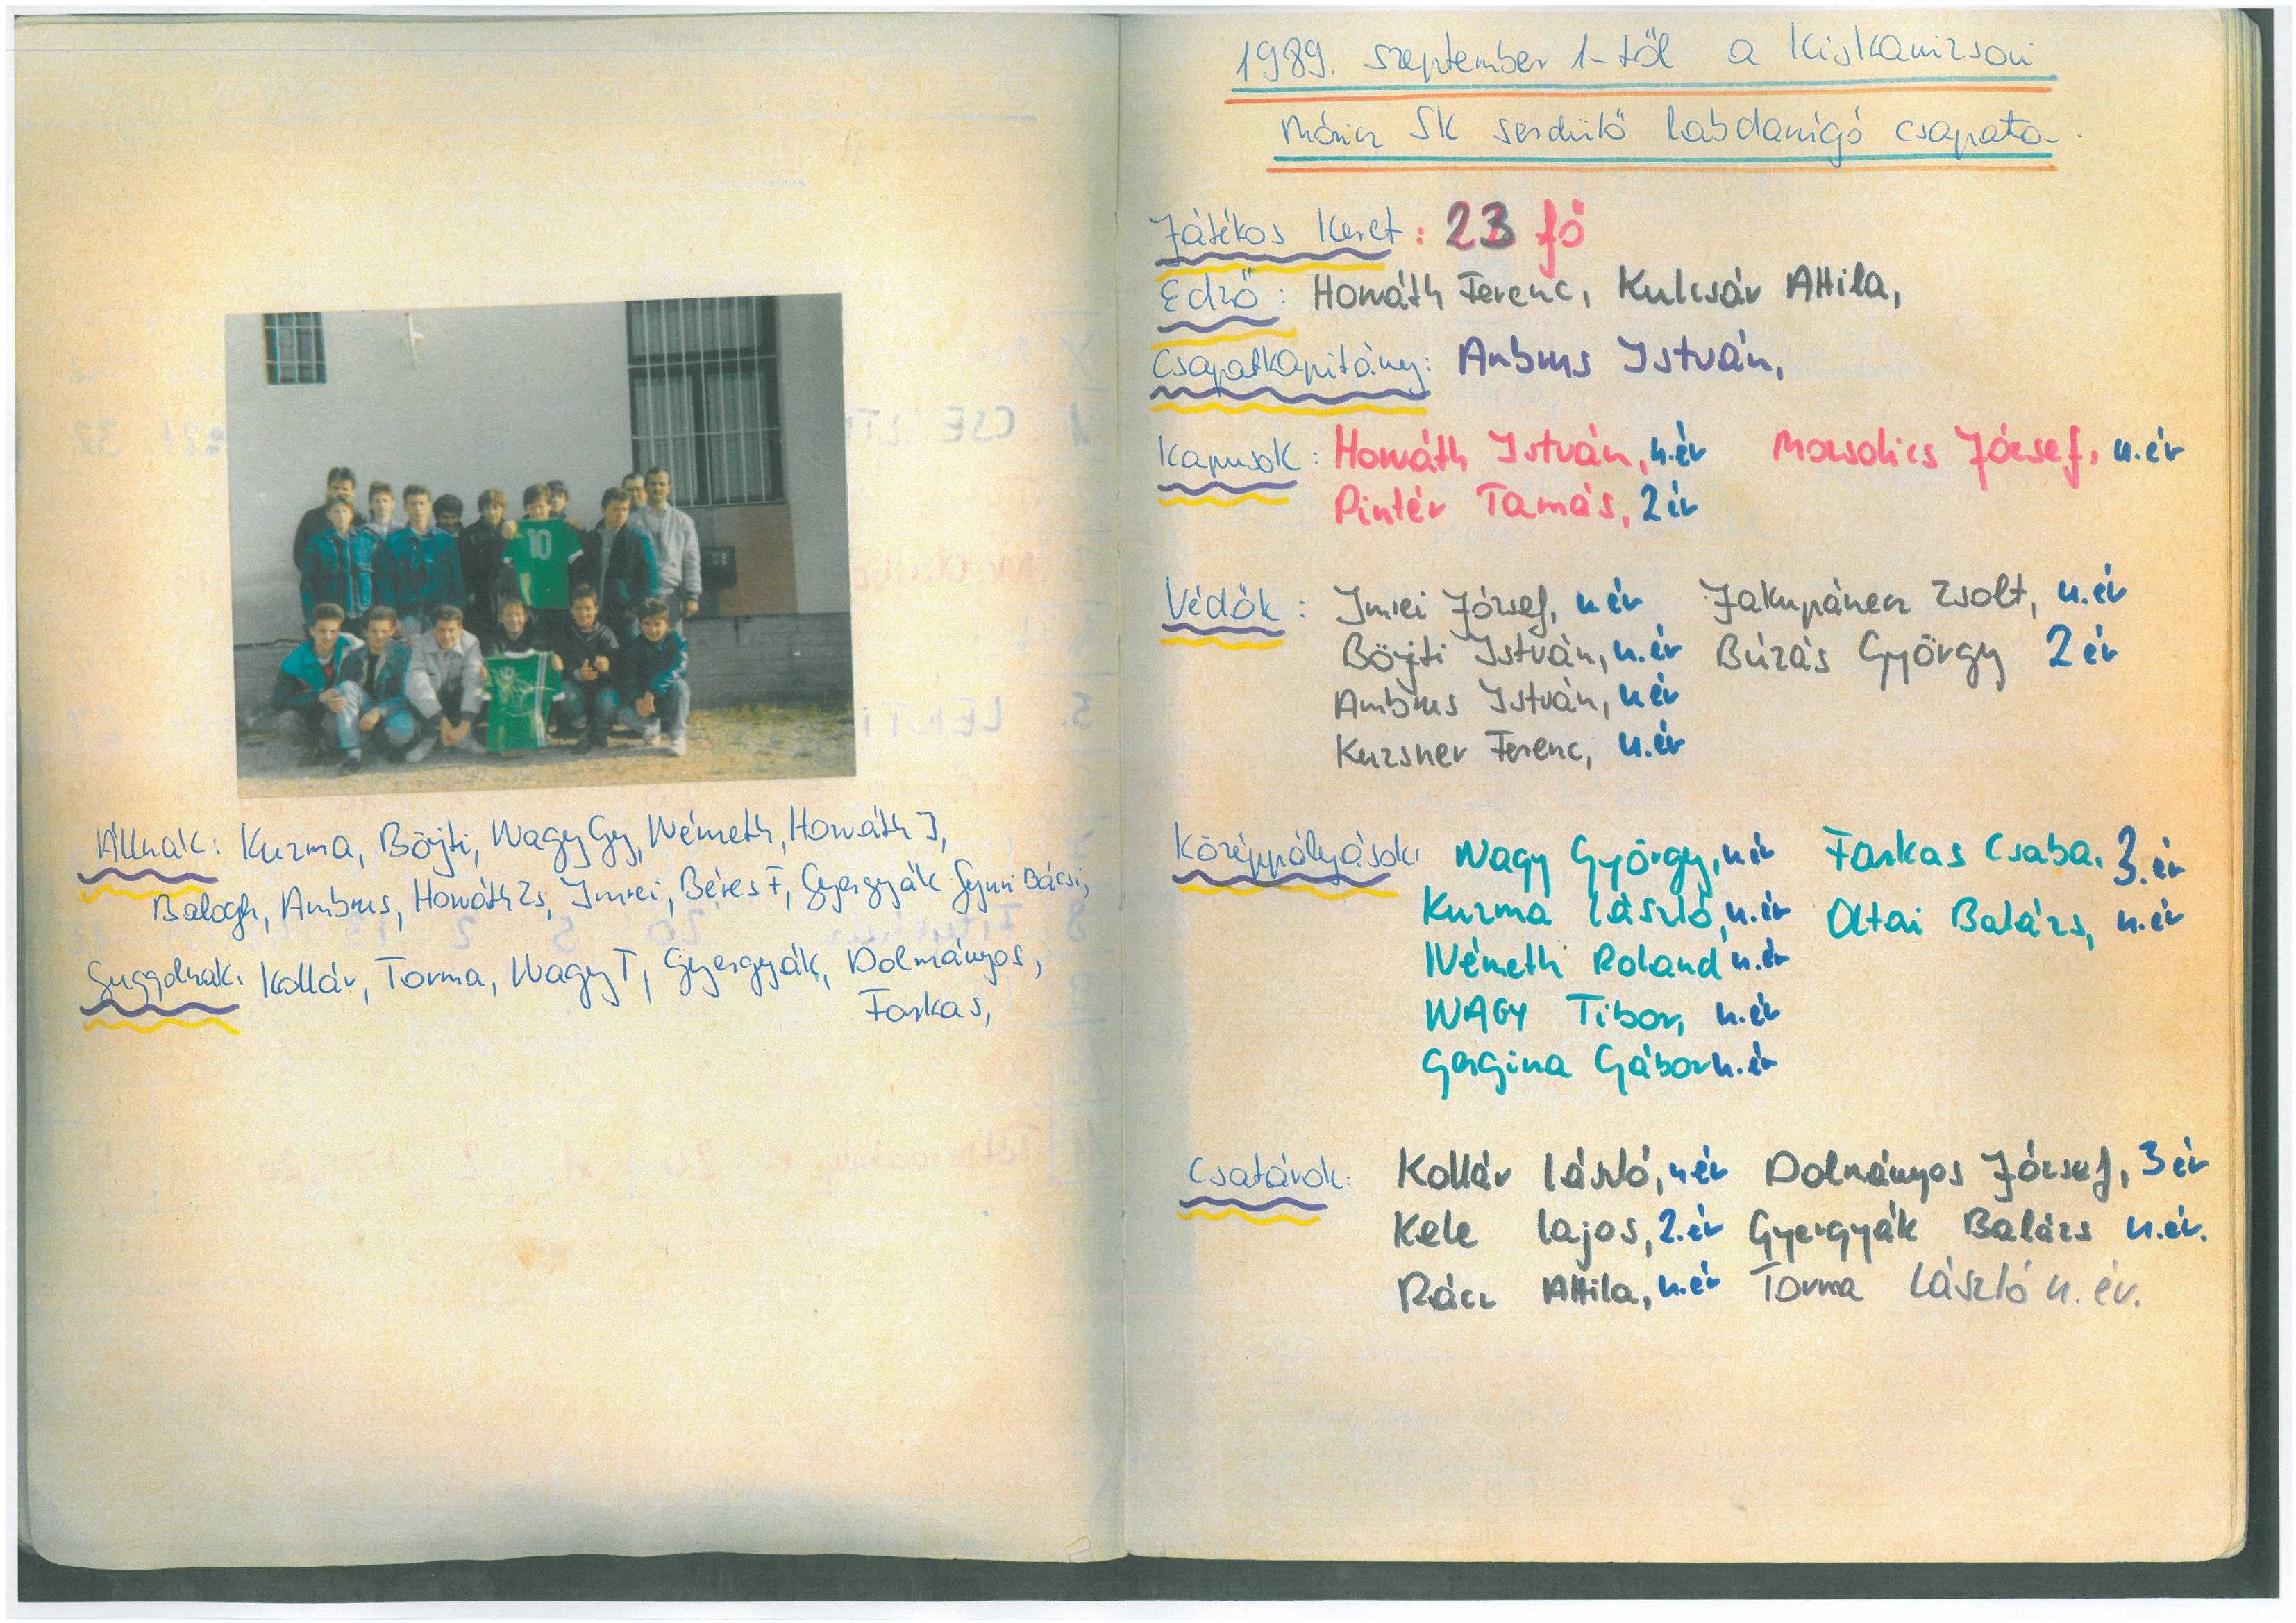 Állnak: Kuzma, Böjti, Nagy Gy, Németh, Horváth I,
Balogh, Ambrus, Horváth Zs, Imrei, Béres F, Gyergyák Gyuri Bácsi,
Guggolnak: Kollár, Torma, Nagy T, Gyergyák, Dolmányos,
Farkas,
1989. szeptember 1-től a Kiskanizsai
Móricz SK serdülő labdarúgó csapata.
Játékos Keret: 23 fő
Edző: Horváth Ferenc, Kulcsár Attila,
Csapatkapitány: Ambrus István,
Kapusok: Horváth István, n.év Mozsolics József, n.év
Pintér Tamás, 2 év
Védők: Imrei József, n év Jakupánecz Zsolt, n.év
Böjti István, n.év Búzás György 2 év
Ambrus István, n év
Kurzsner Ferenc, n.év
Középpályások: Nagy György, n.év Farkas Csaba, 3.év
Kuzma László, n.év Oltai Balázs, n.év
Németh Roland n.év
NAGY Tibor, n.év
Gergina Gábor n.év
Csatárok: Kollár László, n.év Dolmányos József, 3 év
Kele Lajos, 2.év Gyergyák Balázs n.év.
Rácz Attila, n.év Torma László n.év.
10